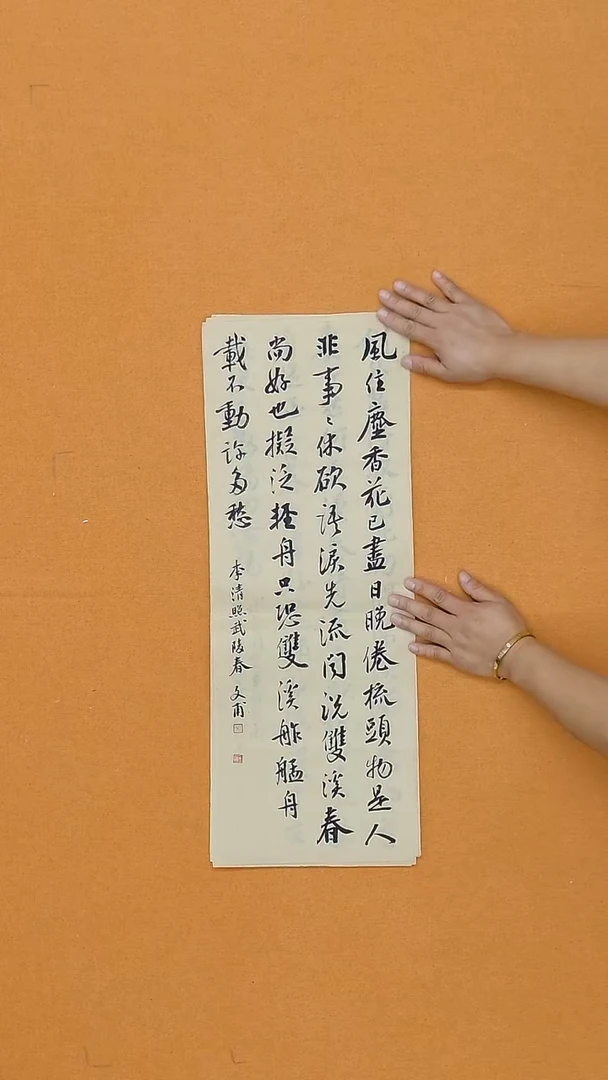 風住塵香花已盡日晚倦梳頭物是人
非事〻休欲語淚先流聞說雙溪春
尚好也擬泛輕舟只恐雙溪舴艋舟
載不動許多愁
李清照武陵春 文甫